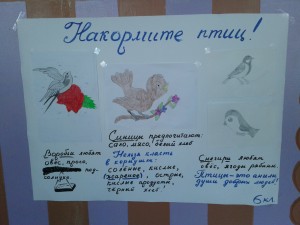 Накормите птиц!
Воробьи любят
овёс, просо,
под-
солнух
Синицы предпочитают
сало, мясо, белый хлеб
Нельзя класть
в кормушку:
соленые, кислые,
(жареное), острые,
кислые продукты,
чёрный хлеб!
Снегири любят
овёс, ягоды рябины.
Птицы - это
души добрых людей!
6 кл